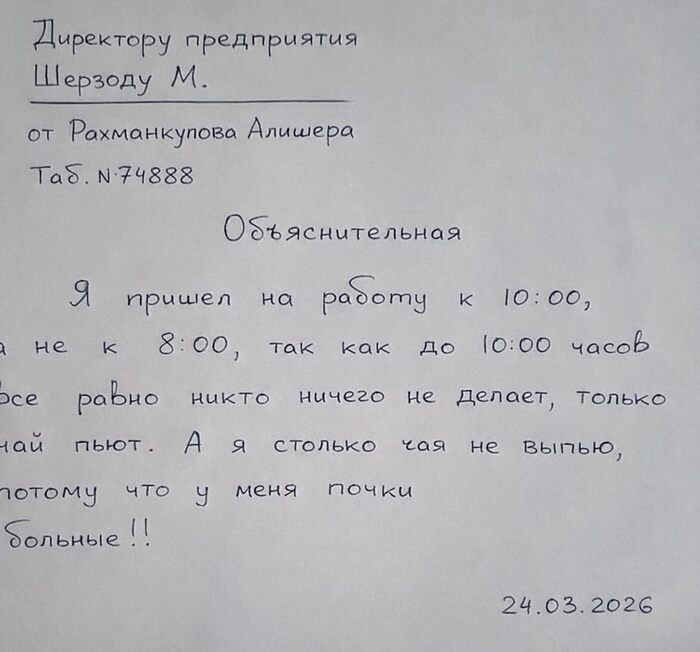 Директору предприятия
Шерзоду М.
от Рахманкупова Алишера
Таб. №74888
Объяснительная
Я пришел на работу к 10:00,
а не к 8:00, так как до 10:00 часов
все равно никто ничего не делает, только
чай пьют. А я столько чая не выпью,
потому что у меня почки
больные!!
24.03.2026